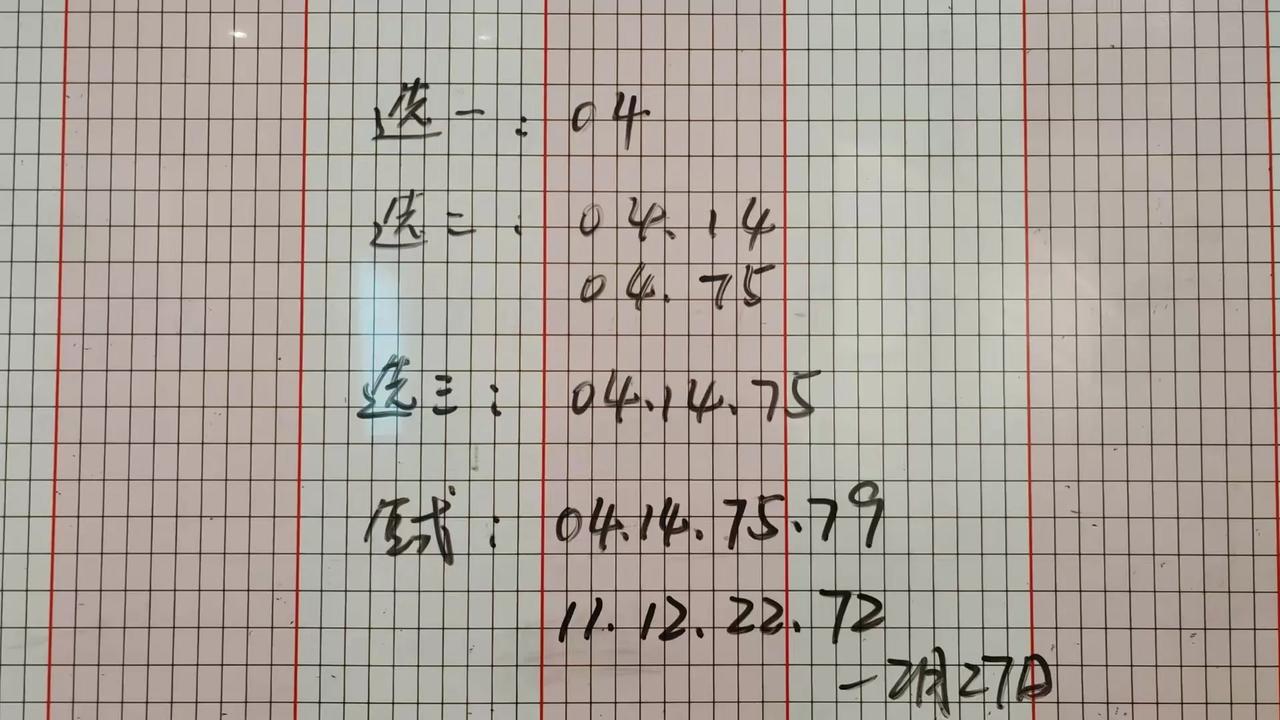 选一：04
选二：04.14
04.75
选三：04.14.75
复式：04.14.75.79
11.12.22.72
-2月27日